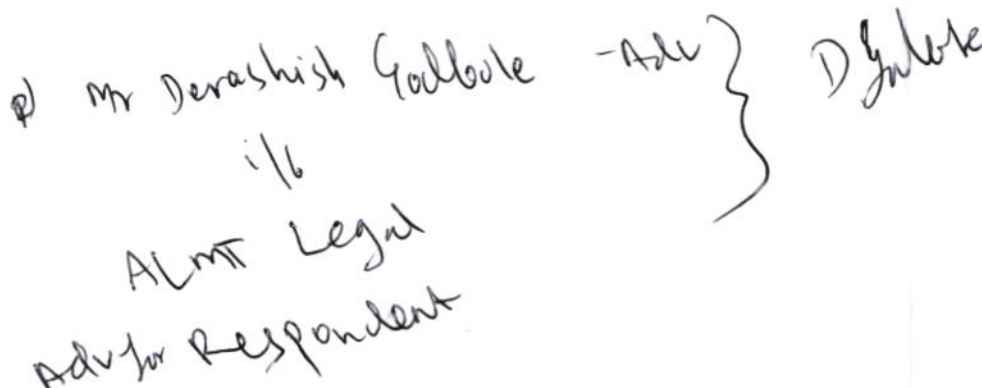 Mr Devashish Godbole - Adv
i/b
ALMT Legal
Adv for Respondent